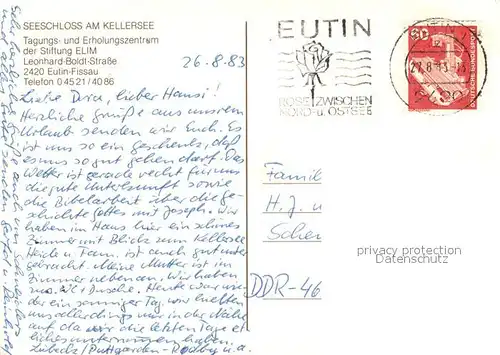 SEESCHLOSS AM KELLERSEE
Tagungs- und Erholungszentrum
der Stiftung ELIM
Leonhard-Boldt-Straße
2420 Eutin-Fissau
Telefon 0 45 21 / 40 86
26.8.83
Liebe Dora, lieber Hansi!
Herzliche Grüße aus unserem
Urlaub senden wir Euch. Es
ist uns so ein Geschenk, daß
es uns so gut gehen darf. Das
Wetter ist gerade recht für uns
die gute Unterkunft sowie
die Bibelarbeit über die Ge-
schichte Gottes mit Joseph. Wir
haben im Haus hier ein schönes
Zimmer mit Blick zum Kellersee
Heide u. Fam. ist auch gut unter-
gebracht. Meine Mutter ist im
Zimmer nebenan. Wir haben
WC + Dusche. Heute war wie-
der ein sonniger Tag. Wir hielten
uns allerdings nur in der Nähe
auf da wir die letzten Tage et-
liches unternommen haben.
Lübeck / Puttgarden - Rødby u.a.
EUTIN
ROSE ZWISCHEN
NORD- u. OSTSEE
27.8.83
60
DEUTSCHE BUNDESPOST
Familie
H. J. u
DDR-46
privacy protection
Datenschutz